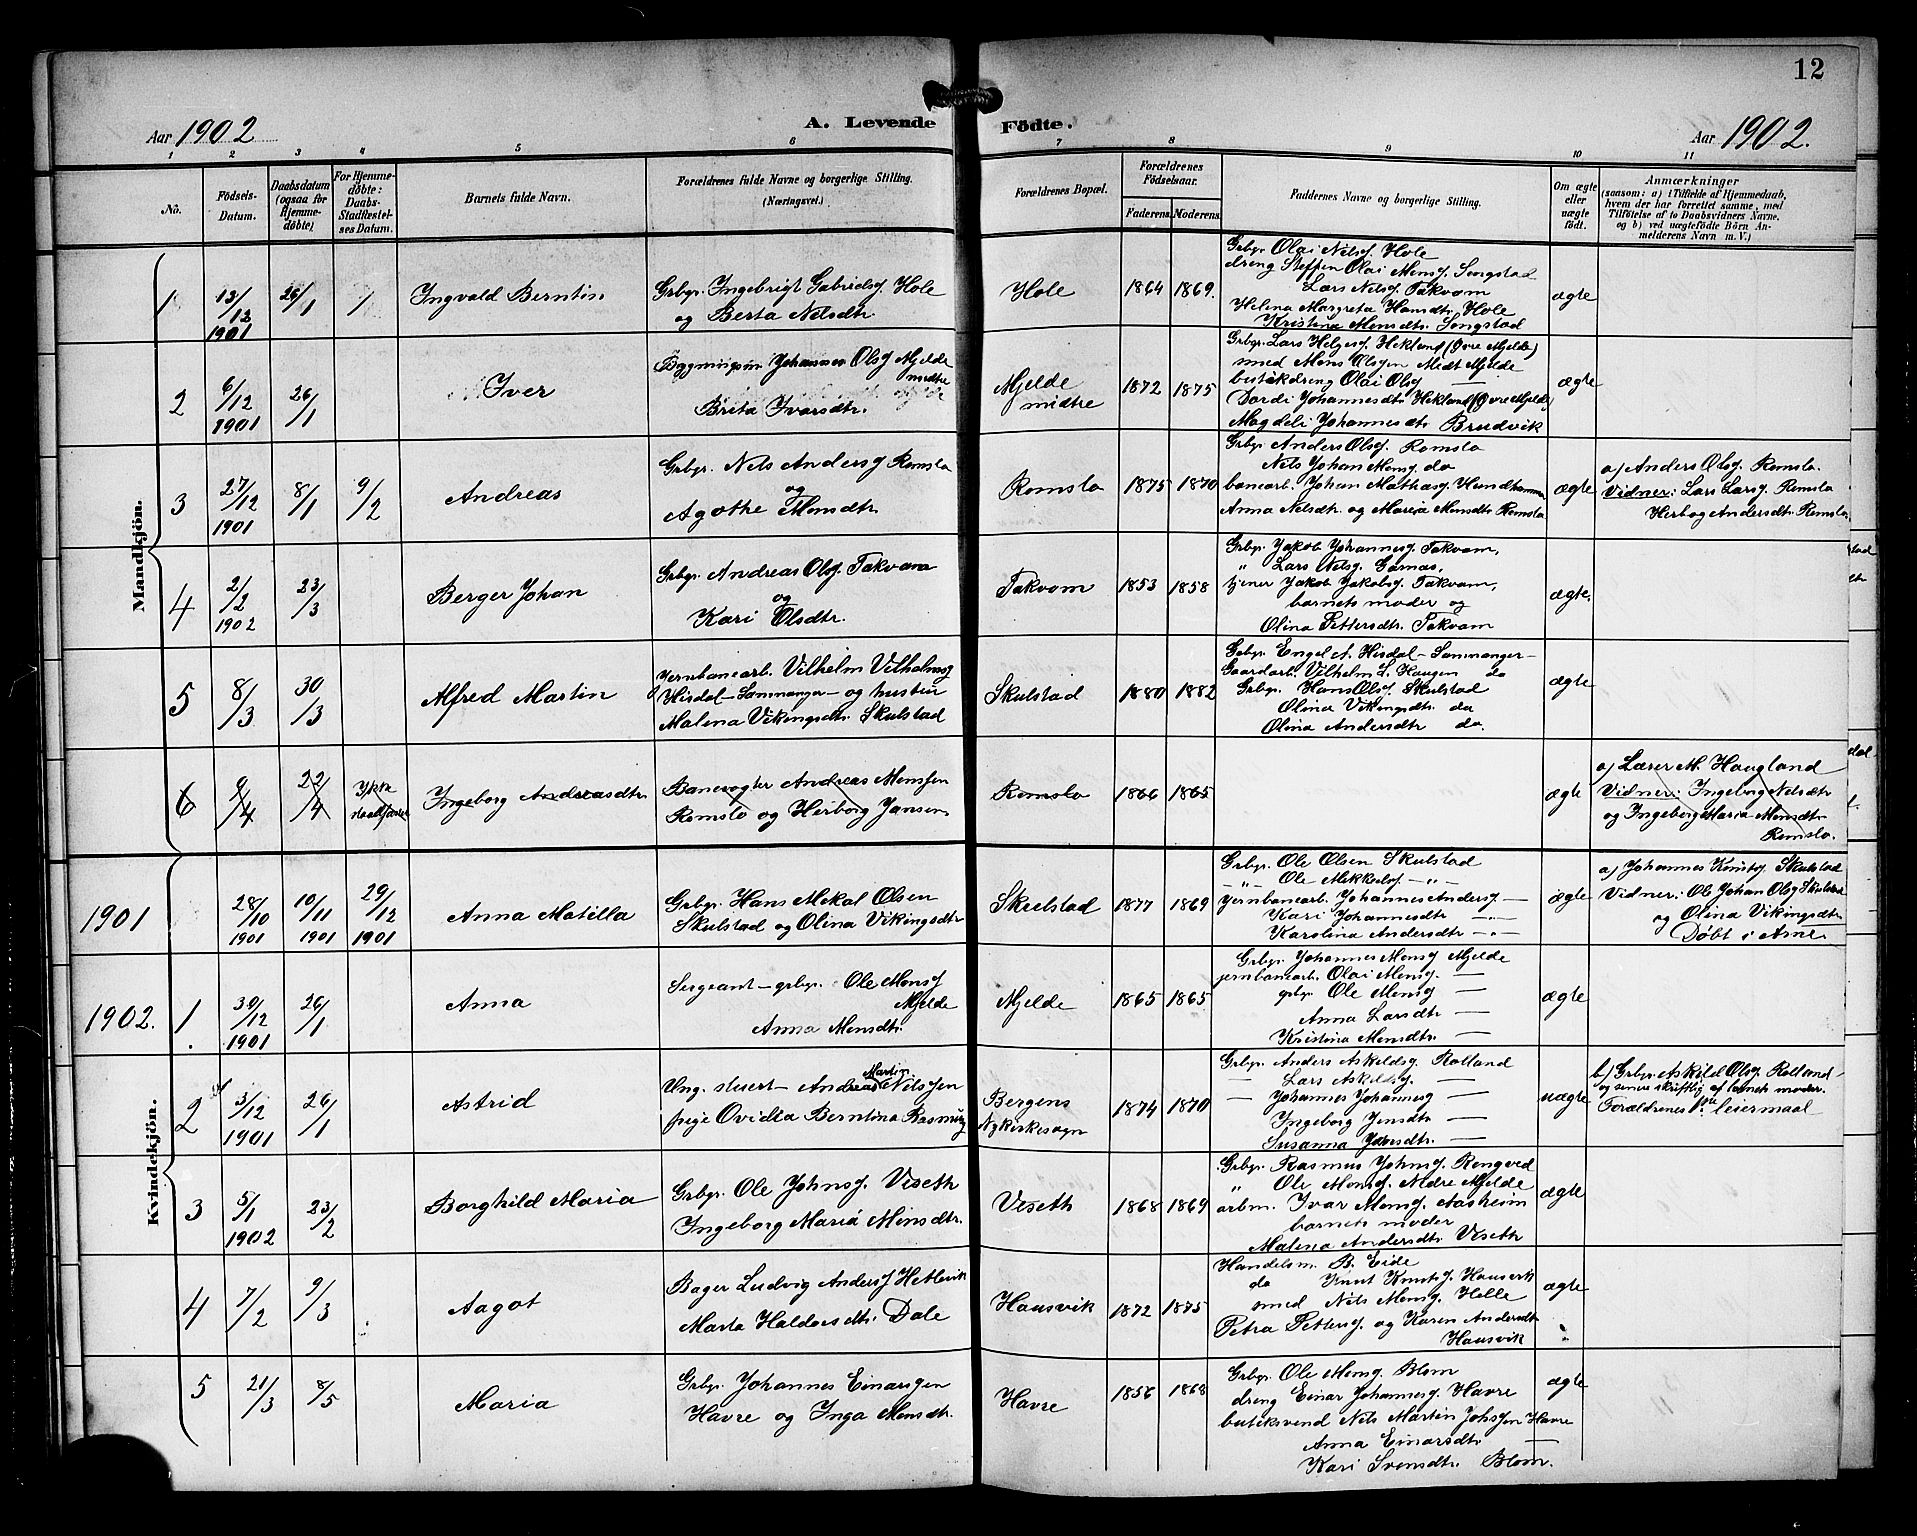 12
Aar 1902
A. Levende
Födte.
Aar 1902.
1 2 3 4 5 6 7 8 9 10 11
No.
Födsels-
Datum.
Daabsdatum
(ogsaa for
Hjemme-
döbte)
For Hjemme-
döbte:
Daabs-
Stadfæstel-
ses Datum.
Barnets fulde Navn.
Forældrenes fulde Navne og borgerlige Stilling.
(Næringsvei.)
Forældrenes Bopæl.
Forældrenes
Födselsaar.
Faderens. Moderens.
Faddernes Navne og borgerlige Stilling.
Om ægte
eller
uægte
födt.
Anmærkninger
(saasom: a) i Tilfælde af Hjemmedaab,
hvem der har forrettet samme, med
Tilföielse af to Daabsvidners Navne,
og b) ved uægtefödte Börn An-
melderens Navn m. V.)
Mandkjön.
1
13/12
1901
26/1
/
Ingvald Berntin
Grbgr. Ingebrigt Gabrielsg Hole
og Berta Nelsdtr.
Hole
1864 1869.
Grbgr Olai Nelsg. Hole
dreng Steffen Olai Monsg. Songstad
Lars Nelsg. Takvam
Helena Margreta Hansdtr. Hole
Kristina Monsdtr. Songstad
ægte
2
6/12
1901
26/1
Iver
Johannes Olsg Mjelde
midtre
Brita Ivarsdtr.
Mjelde
midtre
1872 1875
Grbgr. Lars Helgesg. Hekland (Øvre Mjelde)
smed Mons Olsgen Midt Mjelde
dreng Olai Olsg —
Dordi Johannesdtr. Hekland (Øvre Mjelde)
Magdeli Johannesdtr Brudvik
ægte
3
27/12
1901
8/1
9/2
Andreas
Grbgr. Nels Andersg Romslo
og
Agothe Monsdtr.
Romslo
1875 1870
Grbgr Anders Olsg. Romslo
Nels Johan Monsg. do
banearb. Johan Mathiasg. Hundhammer
Anna Nelsdtr. og Maria Monsdtr. Romslo
ægte
a) Anders Olsg. Romslo.
Vidner: Lars Larsg. Romslo
Herborg Andersdtr. Romslo.
4
2/2
1902
23/3
Berger Johan
Grbgr. Andreas Olsg. Takvam
og
Kari Olsdtr.
Takvam
1853 1858
Grbgr. Jakob Johannesg. Takvam,
" Lars Nelsg. Garnas,
tjener Jakob Jakobsg. Takvam,
barnets moder og
Olina Pettersdtr. Takvam
ægte.
5
8/3
30/3
Alfred Martin
Jernbanearb. Vilhelm Vilhelmsg
Hisdal – Sammanger – og hustru
Malena Vikingsdtr. Skulstad
Skulstad
1880 1882
Grbgr. Engel A. Hisdal – Sammanger –
Gaardarb. Vilhelm L. Haugen do
Grbgr. Hans Olsg. Skulstad
Olina Vikingsdtr. do
Olina Andersdtr do.
ægte
6
9/4
22/4
Ikke
stadfæstet
Ingeborg Andreasdtr.
Banevogter Andreas Monssen
Romslo og Herborg Jansen
Romslo
1866 1865
ægte
a) Lærer M. Haugland
Vidner: Ingeborg Nelsdtr
og Ingeborg Maria Monsdtr.
Romslo.
Kvindekjön.
1901
28/10
1901
10/11
1901
29/12
1901
Anna Matilla
Grbgr. Hans Mekal Olsen
Skulstad og Olina Vikingsdtr
Skulstad
1877 1869
Grbgr. Ole Olsen Skulstad
– " – Ole Mikkelsg – " –
Jernbanearb. Johannes Andersg –
Kari Johannesdtr – " –
Karolina Andersdtr – " –
ægte
a) Johannes Knutsg Skulstad
Vidner: Ole Johan Olsg Skulstad
og Olina Vikingsdtr
Döbt i Arne.
1902.
1.
30/12
1901
26/1
Anna
Sergeant – grbgr. Ole Monsg
Mjelde
Anna Monsdtr.
Mjelde
1865 1865
Grbgr. Johannes Monsg Mjelde
jernbanearb. Olai Monsg. —
grbgr. Ole Monsg —
Anna Larsdtr —
Kristina Monsdtr. —
ægte
2
3/12
1901
26/1
Astrid
Ung. stuert – Andreas Martin Nilssen
pige Ovidia Berntina Rasmusg
Bergens
Nykirkesogn
1874 1870
Grbgr. Anders Askeldsg. Rolland
— Lars Askeldsg. —
— Johannes Johannesg —
Ingeborg Jensdtr —
Susanna Jensdtr. —
uægte
b) Grbgr. Askild Olsg. Rolland –
og senere skriftlig af barnets moder.
Forældrenes 1ste leiermaal
3
5/1
1902
23/2
Borghild Maria
Grbgr. Ole Johnsg. Viseth
Ingeborg Maria Monsdtr.
Viseth
1868 1869
Grbgr. Rasmus Johnsg. Rongved
" Ole Monsg. Nedre Mjelde
arbm. Ivar Monsg. Aasheim
barnets moder
Malena Andersdtr. Viseth
ægte
4
7/2
9/3
Aagot
Bager Ludvig Andersg Hetlevik
Marta Haldorsdtr. Dale
Hausvik
1872 1875
Handelsm. B. Eide
do Knut Knutsg. Hausvik
smed Nils Monsg. Helle
Petra Pettersg. og Karen Andersdtr
Hausvik
ægte
5
21/3
8/5
Maria
Grbgr. Johannes Einarsgen
Havre og Inga Monsdtr.
Havre
1856 1868
Grbgr. Ole Monsg. Blom
dreng Einar Johannesg. Havre
butiksvend Nils Martin Johssen Havre
Anna Einarsdtr —
Kari Svensdtr. Blom.
ægte